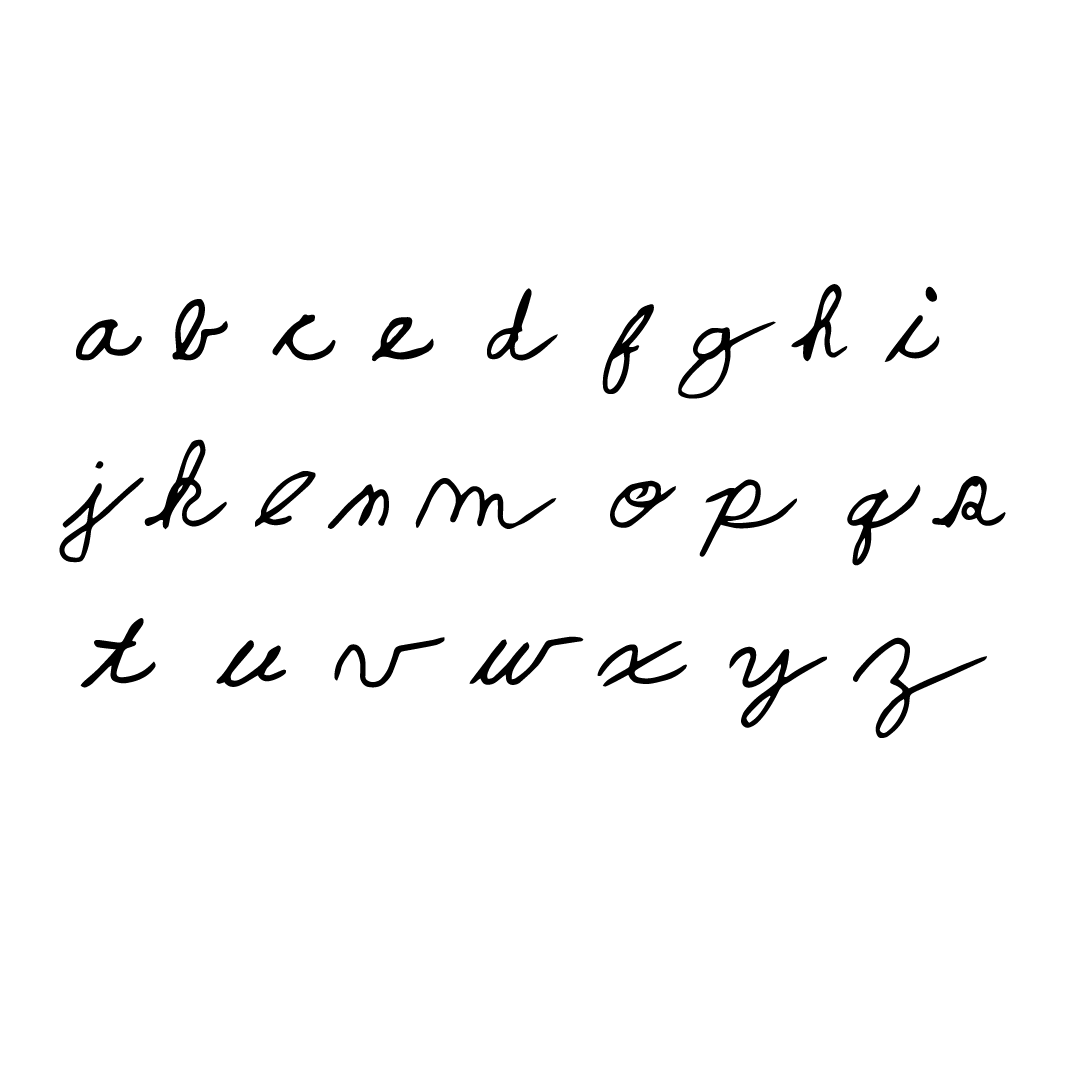 a b c e d f g h i
j k l n m o p q s
t u v w x y z